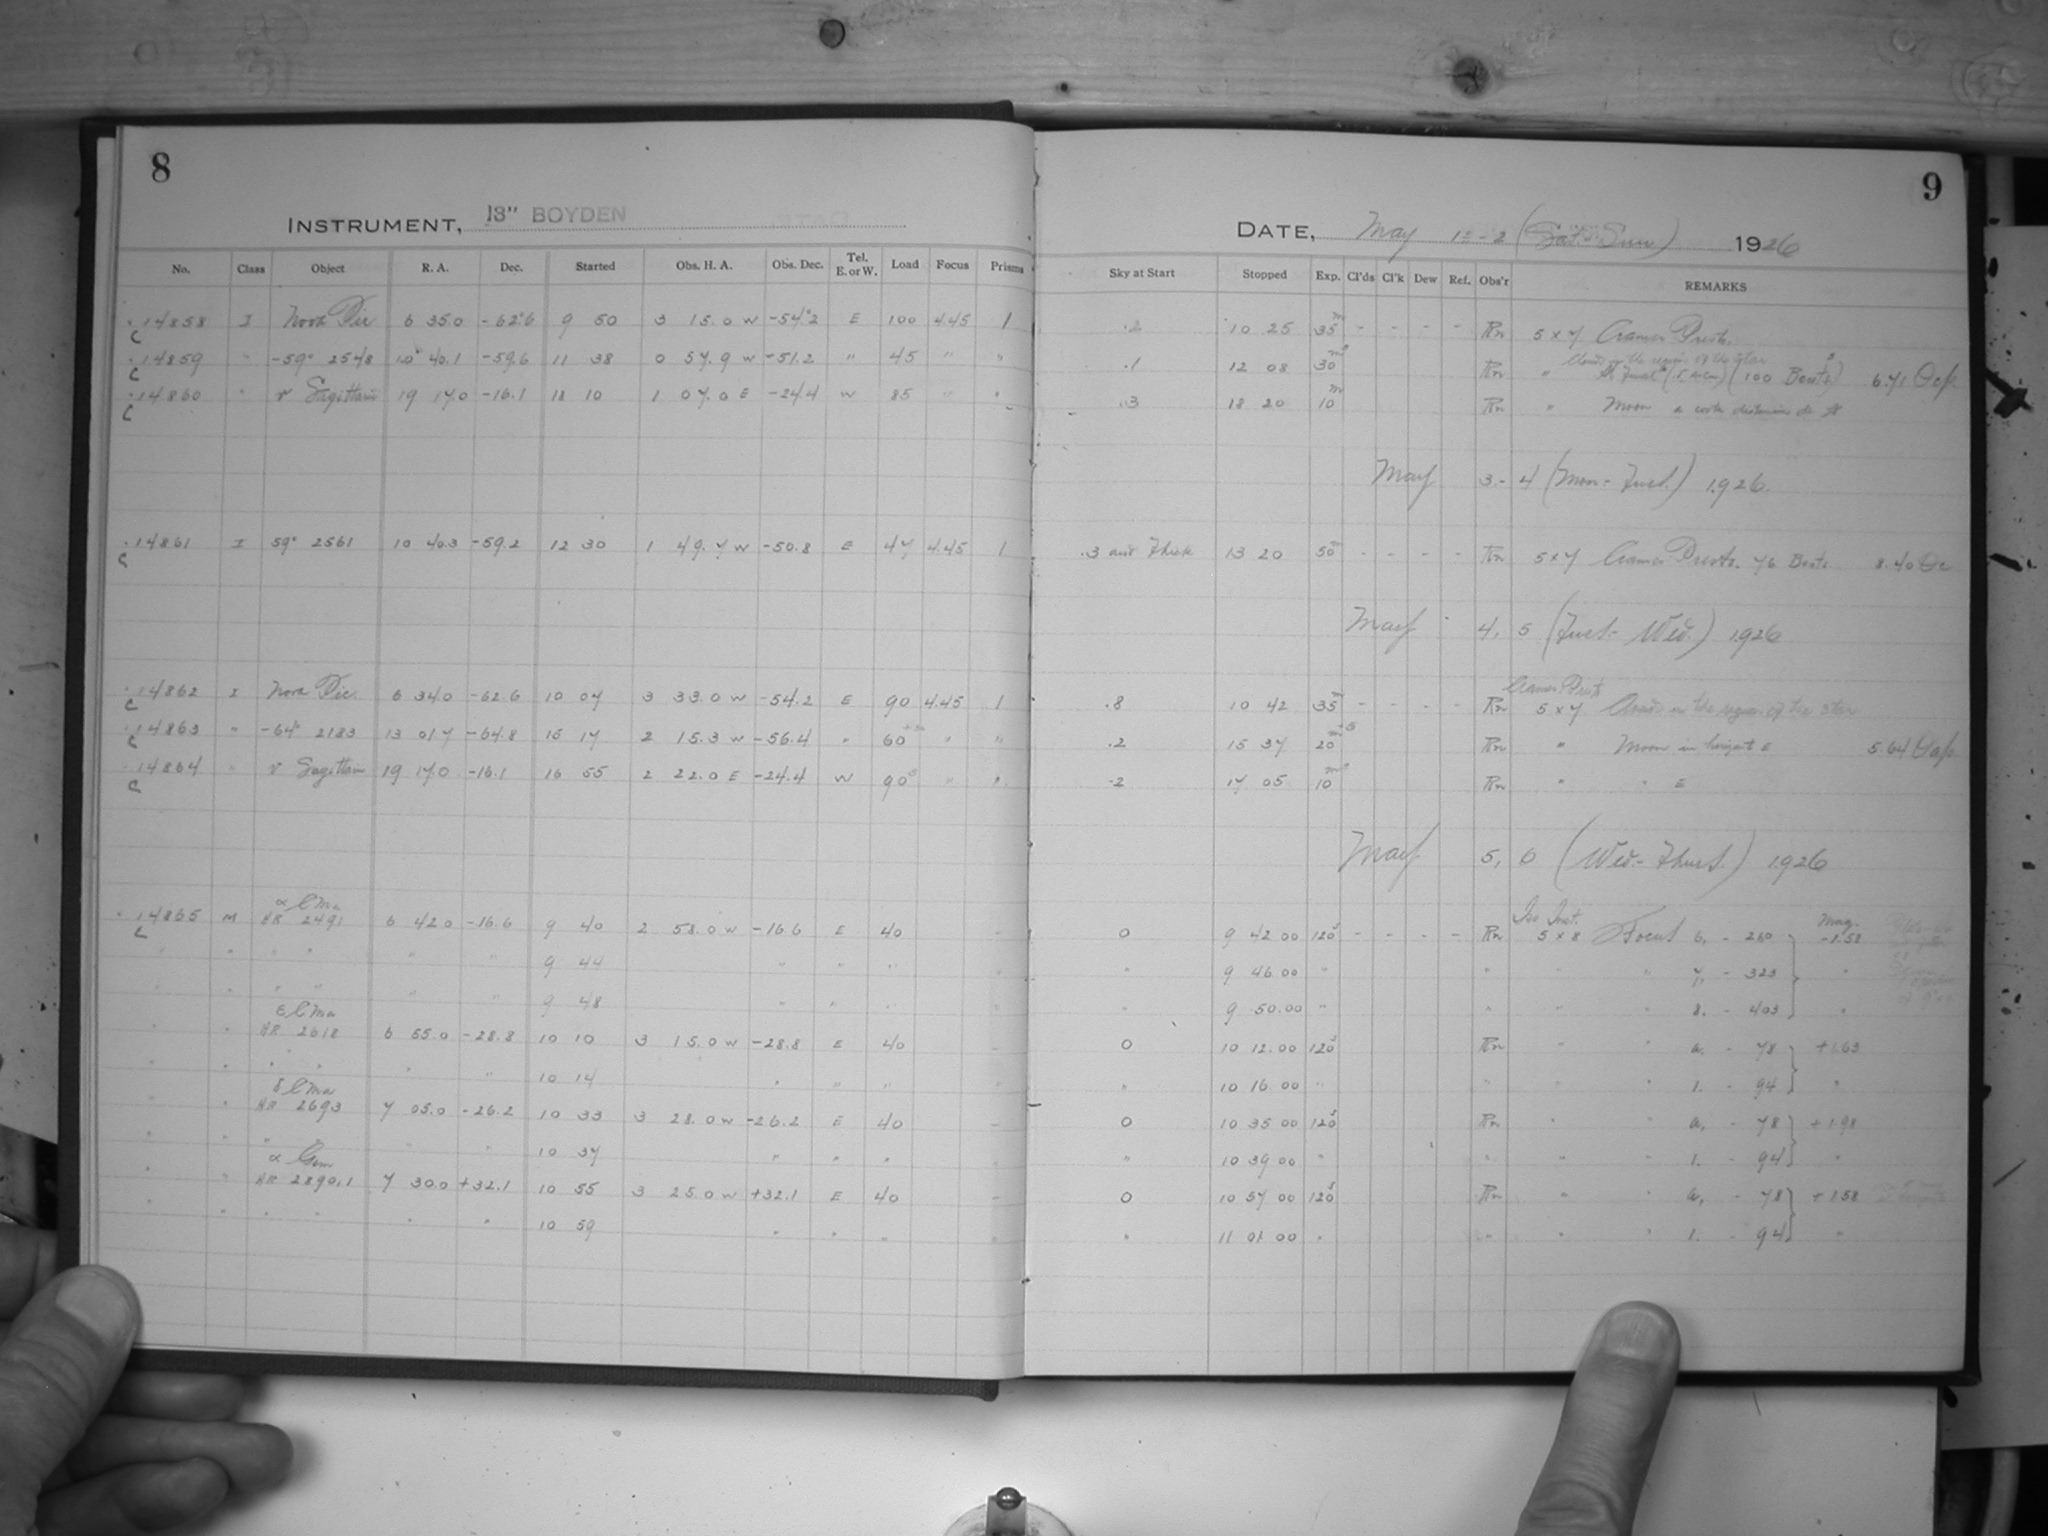 8
INSTRUMENT, 13" BOYDEN
No. Class Object R. A. Dec. Started Obs. H. A. Obs. Dec. Tel. E. or W. Load Focus Prisms
14858 I Nova Pic 6 35.0 -62°6 9 50 3 15.0 W -54°2 E 100 4.45 1
C
14859 " -59° 2548 10 40.1 -59.6 11 38 0 57.9 W -51.2 " 45 " "
C
14860 " v Sagittarii 19 17.0 -16.1 18 10 1 07.0 E -24.4 W 85 " "
C
14861 I 59° 2561 10 40.3 -59.2 12 30 1 49.7 W -50.8 E 47 4.45 1
C
14862 I Nova Pic. 6 34.0 -62.6 10 07 3 33.0 W -54.2 E 90 4.45 1
C
14863 " -64° 2183 13 01.7 -64.8 15 17 2 15.3 W -56.4 " 60 " "
C
14864 " v Sagittarii 19 17.0 -16.1 16 55 2 22.0 E -24.4 W 90 " "
C
α C Ma
14865 M HR 2491 6 42.0 -16.6 9 40 2 58.0 W -16.6 E 40 -
C
" " " " " 9 44 " " " "
" " " " " 9 48 " " " "
ε C Ma
" " HR 2618 6 55.0 -28.8 10 10 3 15.0 W -28.8 E 40 -
" " " " " " 10 14 " " " "
δ C Ma
" HR 2693 7 05.0 -26.2 10 33 3 28.0 W -26.2 E 40 -
" " " " " 10 37 " " " "
α Gem
" " HR 2890,1 7 30.0 +32.1 10 55 3 25.0 W +32.1 E 40 -
" " " " " 10 59 " " " "
9
DATE, May 1-2 (Sat-Sun) 1926
Sky at Start Stopped Exp. Cl'ds Cl'k Dew Ref. Obs'r REMARKS
.2 10 25 35m - - - - 5 x 7 Cramer Presto.
in the region of the star
.1 12 08 30m " (100 Beats) 6.71
.3 18 20 10m " Moon a
May 3-4 (Mon-Tues.) 1926.
.3 and Thick 13 20 50m - - - - 5 x 7 Cramer Presto. 76 Beats 8.40
May 4, 5 (Tues- Wed.) 1926
Cramer Presto
.8 10 42 35m - - - - 5 x 7 in the region of the star
.2 15 37 20m " Moon in E 5.64
.2 17 05 10m " " E
May 5, 6 (Wed.- Thurs.) 1926
Iso Inst. Mag.
0 9 42 00 120s - - - - 5 x 8 Focus 6. - 260 -1.58
" 9 46.00 " " " " 7. - 323 "
" 9 50.00 " " " 8. - 403 "
0 10 12.00 120s " " a. - 78 +1.63
" 10 16 00 " " " " 1. - 94 "
0 10 35 00 120s " " a. - 78 +1.98
" 10 39 00 " " " " 1. - 94 "
0 10 57 00 120s " " a. - 78 +1.58
" 11 01 00 " " " " 1. - 94 "